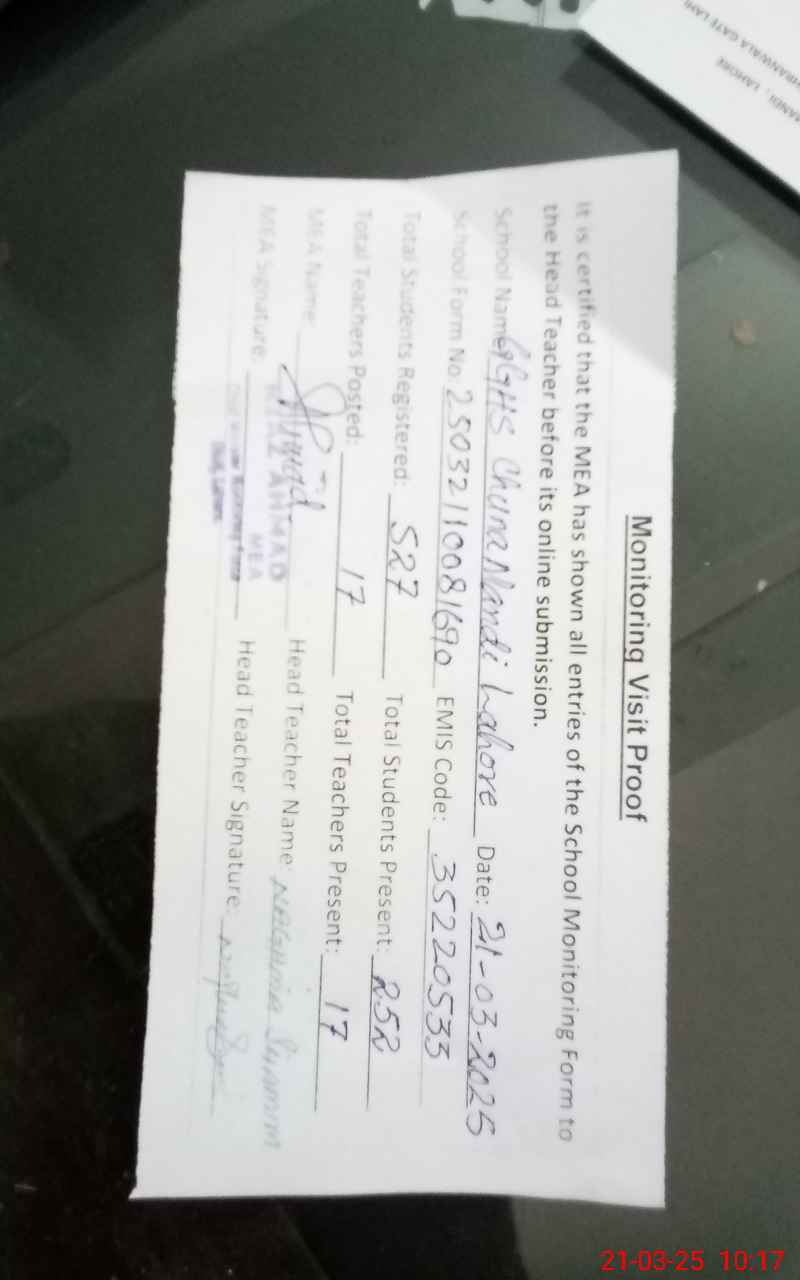 Monitoring Visit Proof
It is certified that the MEA has shown all entries of the School Monitoring Form to
the Head Teacher before its online submission.
School Name: GGHS Chuna Mandi Lahore Date: 21-03-2025
School Form No: 25032110081690 EMIS Code: 35220533
Total Students Registered: 527 Total Students Present: 252
Total Teachers Posted: 17 Total Teachers Present: 17
MEA Name: Head Teacher Name: Shamim
AHMAD
MEA
MEA Signature: Head Teacher Signature:
LAHORE
21-03-25 10:17